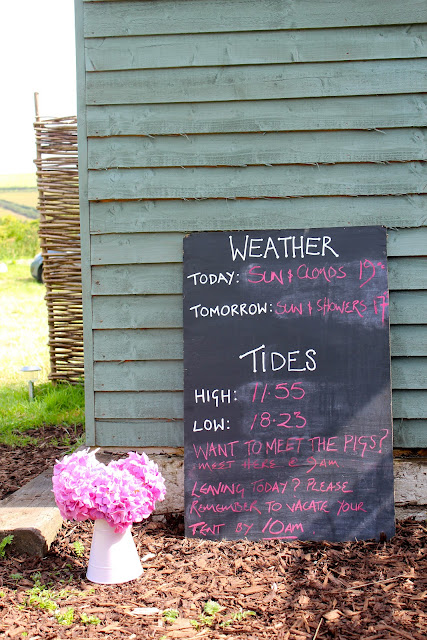 WEATHER
TODAY: SUN & CLOUDS 19°
TOMORROW: SUN & SHOWERS 17°
TIDES
HIGH: 11.55
LOW: 18.23
WANT TO MEET THE PIGS?
MEET HERE @ 9AM
LEAVING TODAY? PLEASE
REMEMBER TO VACATE YOUR
TENT BY 10AM